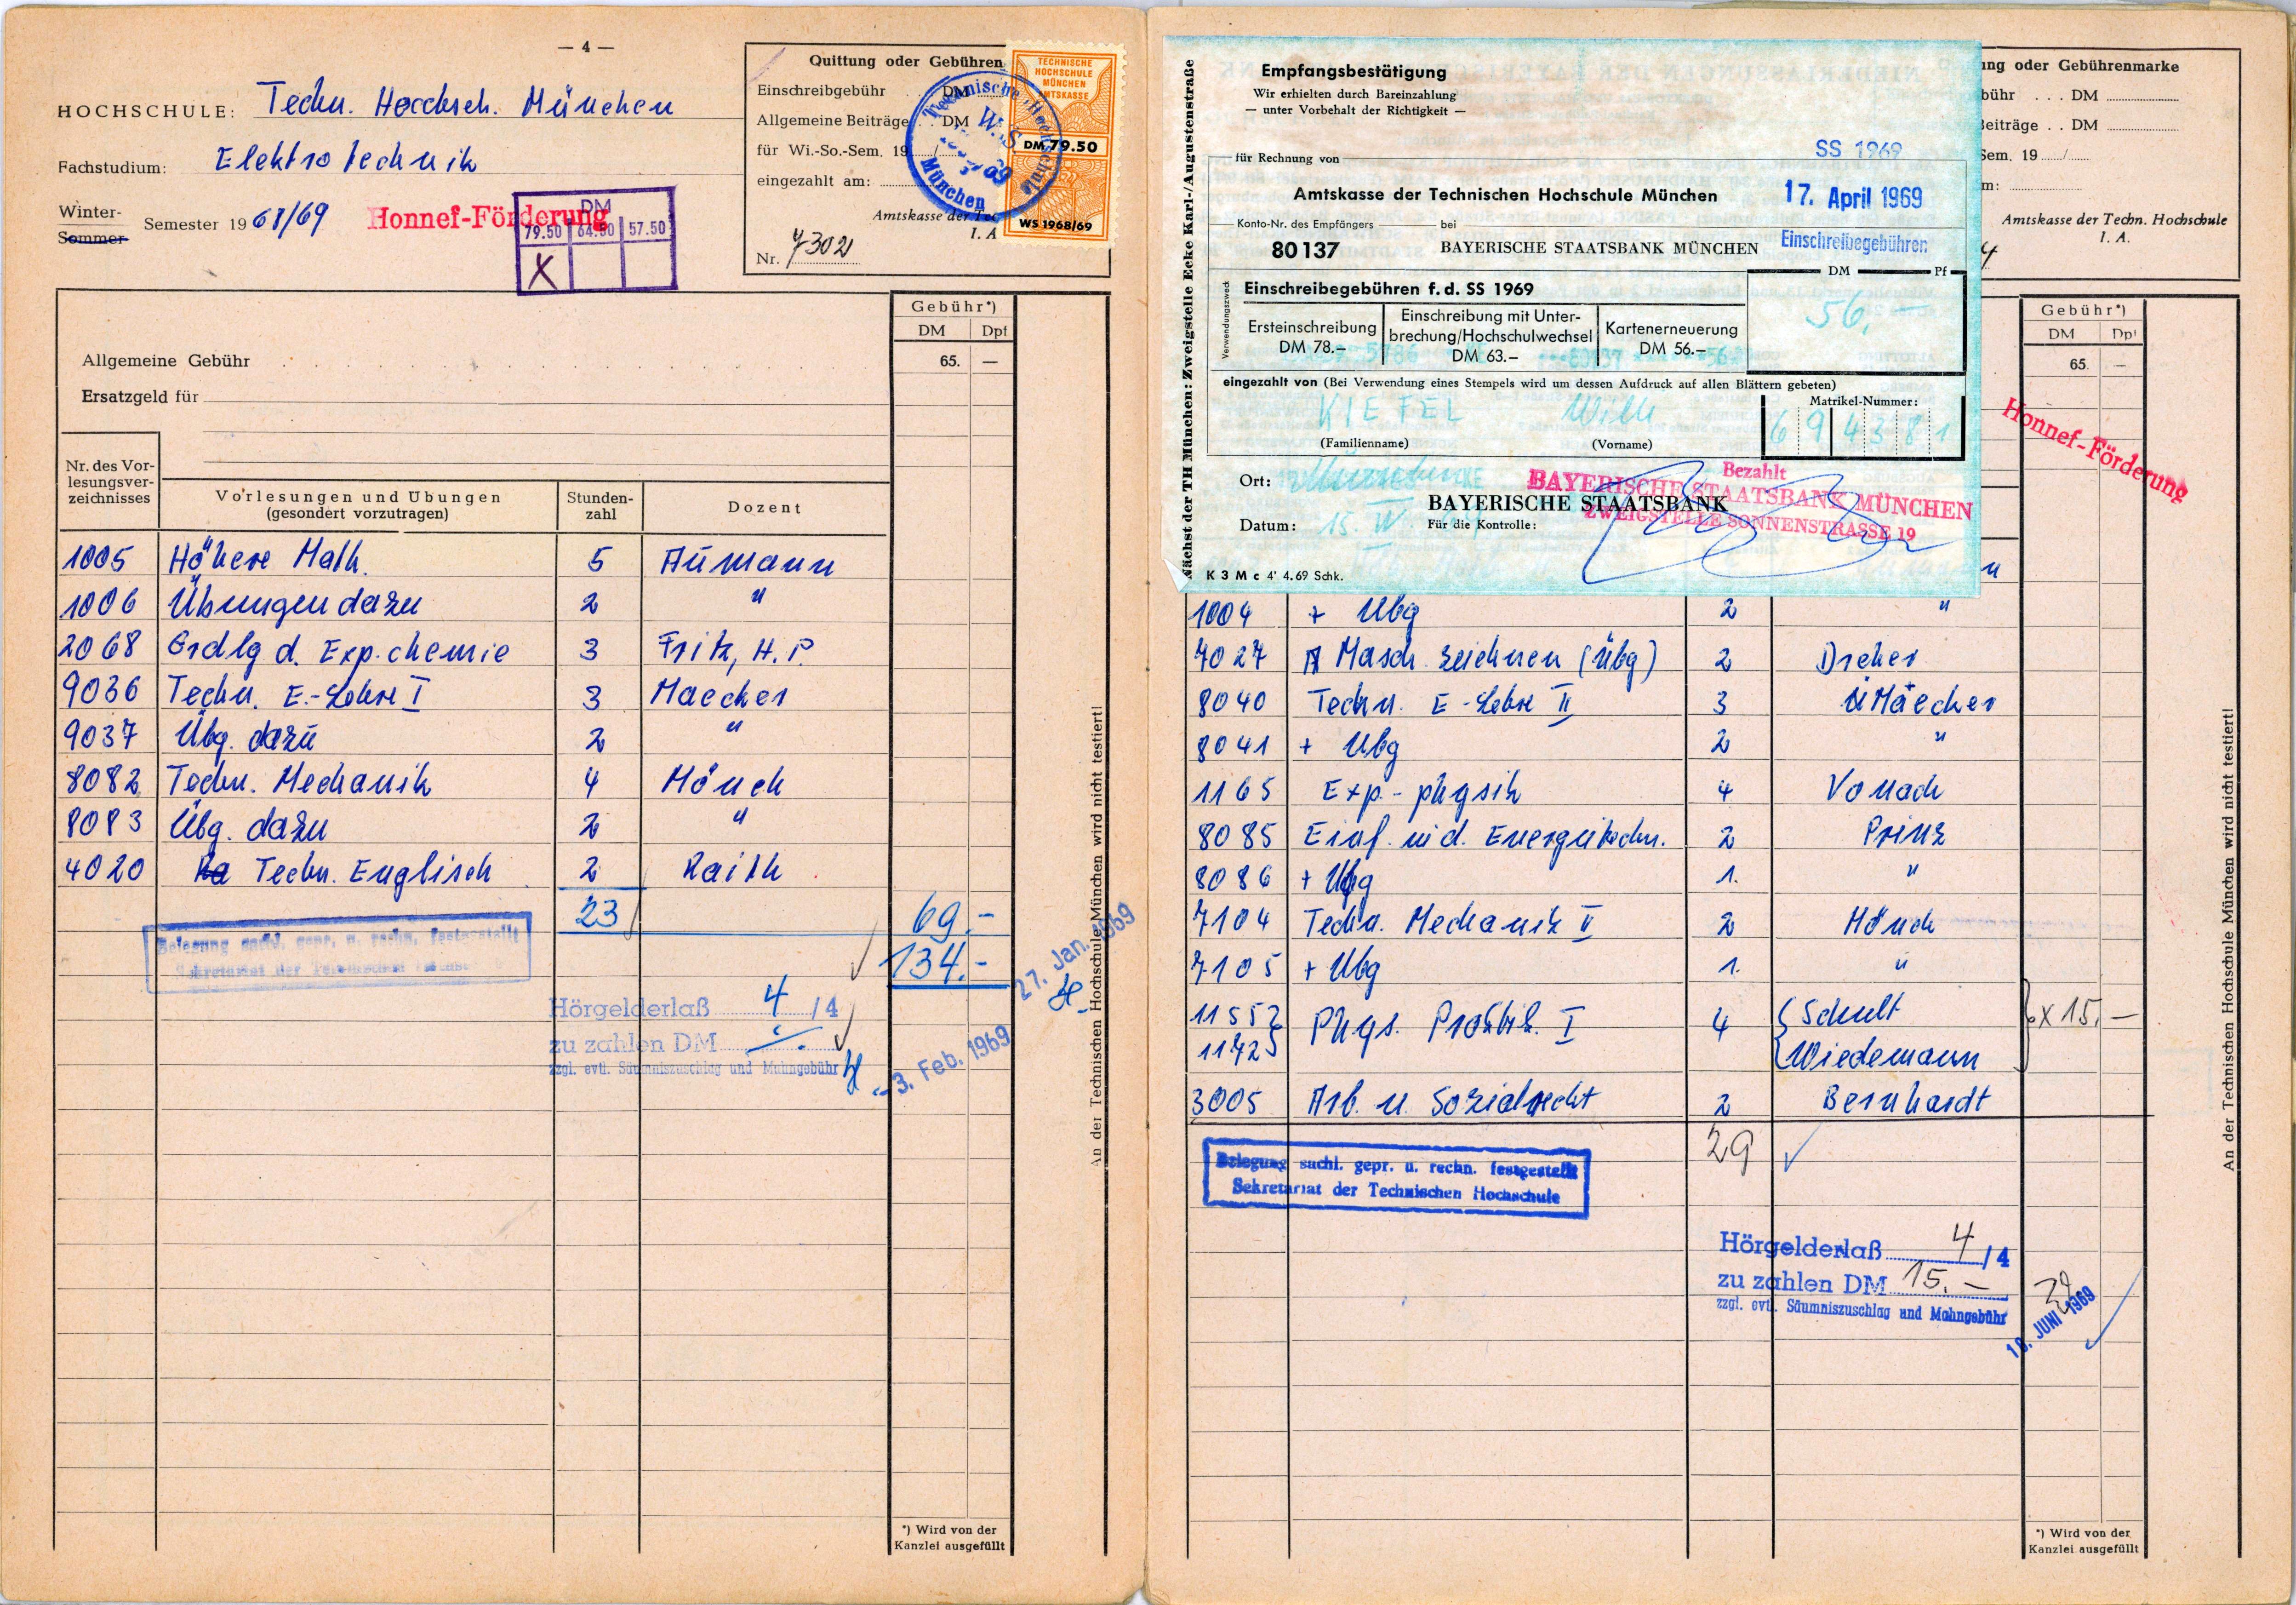 — 4 —
HOCHSCHULE: Techn. Hochsch. München
Fachstudium: Elektrotechnik
Winter-
Sommer Semester 19 68/69
Honnef-Förderung
DM
79.50 64.50 57.50
X
Quittung oder Gebühren
Einschreibgebühr DM
Allgemeine Beiträge . . DM
für Wi.-So.-Sem. 19 /
eingezahlt am:
Amtskasse der Tec
I. A
Nr. 7302
TECHNISCHE
HOCHSCHULE
MÜNCHEN
AMTSKASSE
DM 79.50
WS 1968/69
Technische Hochschule
München
W.S.
Gebühr*)
DM Dpf
Allgemeine Gebühr 65. —
Ersatzgeld für
Nr. des Vor-
lesungsver-
zeichnisses
Vorlesungen und Übungen
(gesondert vorzutragen)
Stunden-
zahl
Dozent
1005 Höhere Math. 5 Aumann
1006 Übungen dazu 2 "
2068 Grdlg d. Exp.chemie 3 Fritz, H. P.
9036 Techn. E.-Lehre I 3 Maecker
9037 Übg. dazu 2 "
8082 Techn. Mechanik 4 Mönch
8083 Übg. dazu 2 "
4020 Techn. Englisch 2 Raith
23 69.-
134.-
Belegung sachl. gepr. u. rechn. festgestellt
Sekretariat der Technischen Hochschule
27. Jan. 1969
Hörgelderlaß 4 / 4
zu zahlen DM
zzgl. evtl. Säumniszuschlag und Mahngebühr
- 3. Feb. 1969
An der Technischen Hochschule München wird nicht testiert!
*) Wird von der
Kanzlei ausgefüllt
Nächst der TH München: Zweigstelle Ecke Karl-/Augustenstraße
Empfangsbestätigung
Wir erhielten durch Bareinzahlung
— unter Vorbehalt der Richtigkeit —
SS 1969
für Rechnung von
Amtskasse der Technischen Hochschule München
17. April 1969
Konto-Nr. des Empfängers bei
80137 BAYERISCHE STAATSBANK MÜNCHEN
Einschreibegebühren
DM Pf
Verwendungszweck
Einschreibegebühren f. d. SS 1969
56,—
Ersteinschreibung
DM 78.–
Einschreibung mit Unter-
brechung/Hochschulwechsel
DM 63.–
Kartenerneuerung
DM 56.–
eingezahlt von (Bei Verwendung eines Stempels wird um dessen Aufdruck auf allen Blättern gebeten)
KIEFEL Willi
(Familienname) (Vorname)
Matrikel-Nummer:
694381
Ort:
Bezahlt
BAYERISCHE STAATSBANK MÜNCHEN
ZWEIGSTELLE SONNENSTRASSE 19
BAYERISCHE STAATSBANK
Datum: 15. IV.
Für die Kontrolle:
K 3 M c 4' 4.69 Schk.
ung oder Gebührenmarke
bühr . . . DM
Beiträge . . DM
Sem. 19 /
m:
Amtskasse der Techn. Hochschule
I. A.
4
Gebühr*)
DM Dpf
65. —
Honnef-Förderung
1004 + Übg 2 "
7027 Masch. zeichnen (Übg) 2 Dreher
8040 Techn. E-Lehre II 3 Maecker
8041 + Übg 2 "
1165 Exp.-physik 4 Vonach
8085 Einf. in d. Energietechn. 2 Prinz
8086 + Übg 1. "
7104 Techn. Mechanik II 2 Mönch
7105 + Übg 1. "
1155 Phys. Praktik. I 4 Schult x 15.—
1172 Wiedemann
3005 Arb. u. Sozialrecht 2 Bernhardt
29
Belegung sachl. gepr. u. rechn. festgestellt
Sekretariat der Technischen Hochschule
Hörgelderlaß 4 / 4
zu zahlen DM 15.—
zzgl. evtl. Säumniszuschlag und Mahngebühr
18. JUNI 1969
An der Technischen Hochschule München wird nicht testiert!
*) Wird von der
Kanzlei ausgefüllt